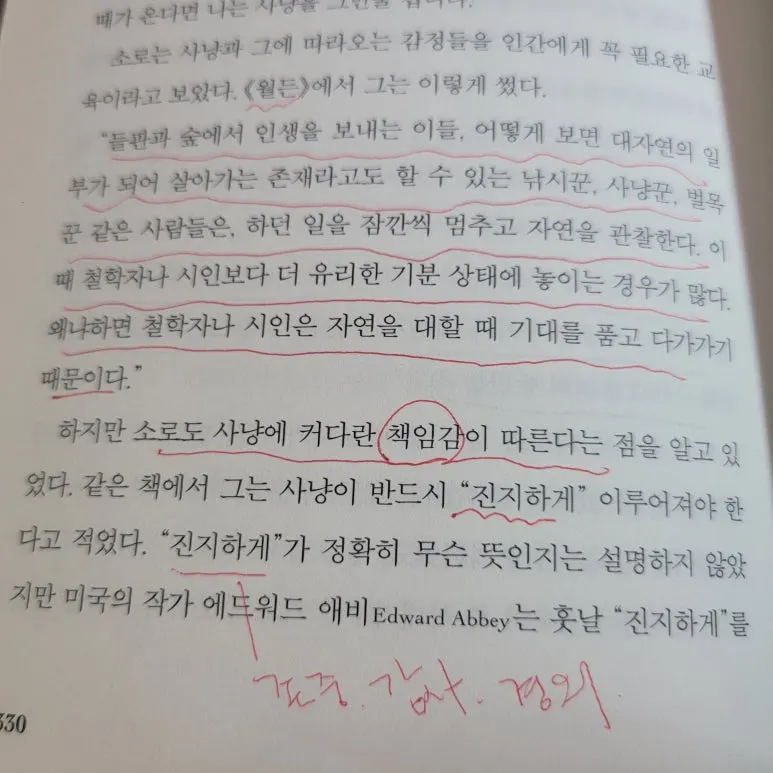 때가 온다면 나는 사냥을 그만둘 겁니다.
소로는 사냥과 그에 따라오는 감정들을 인간에게 꼭 필요한 교
육이라고 보았다. 《월든》에서 그는 이렇게 썼다.
“들판과 숲에서 인생을 보내는 이들, 어떻게 보면 대자연의 일
부가 되어 살아가는 존재라고도 할 수 있는 낚시꾼, 사냥꾼, 벌목
꾼 같은 사람들은, 하던 일을 잠깐씩 멈추고 자연을 관찰한다. 이
때 철학자나 시인보다 더 유리한 기분 상태에 놓이는 경우가 많다.
왜냐하면 철학자나 시인은 자연을 대할 때 기대를 품고 다가가기
때문이다.”
하지만 소로도 사냥에 커다란 책임감이 따른다는 점을 알고 있
었다. 같은 책에서 그는 사냥이 반드시 “진지하게” 이루어져야 한
다고 적었다. “진지하게”가 정확히 무슨 뜻인지는 설명하지 않았
지만 미국의 작가 에드워드 애비Edward Abbey는 훗날 “진지하게”를
존중. 감사. 경외.
330